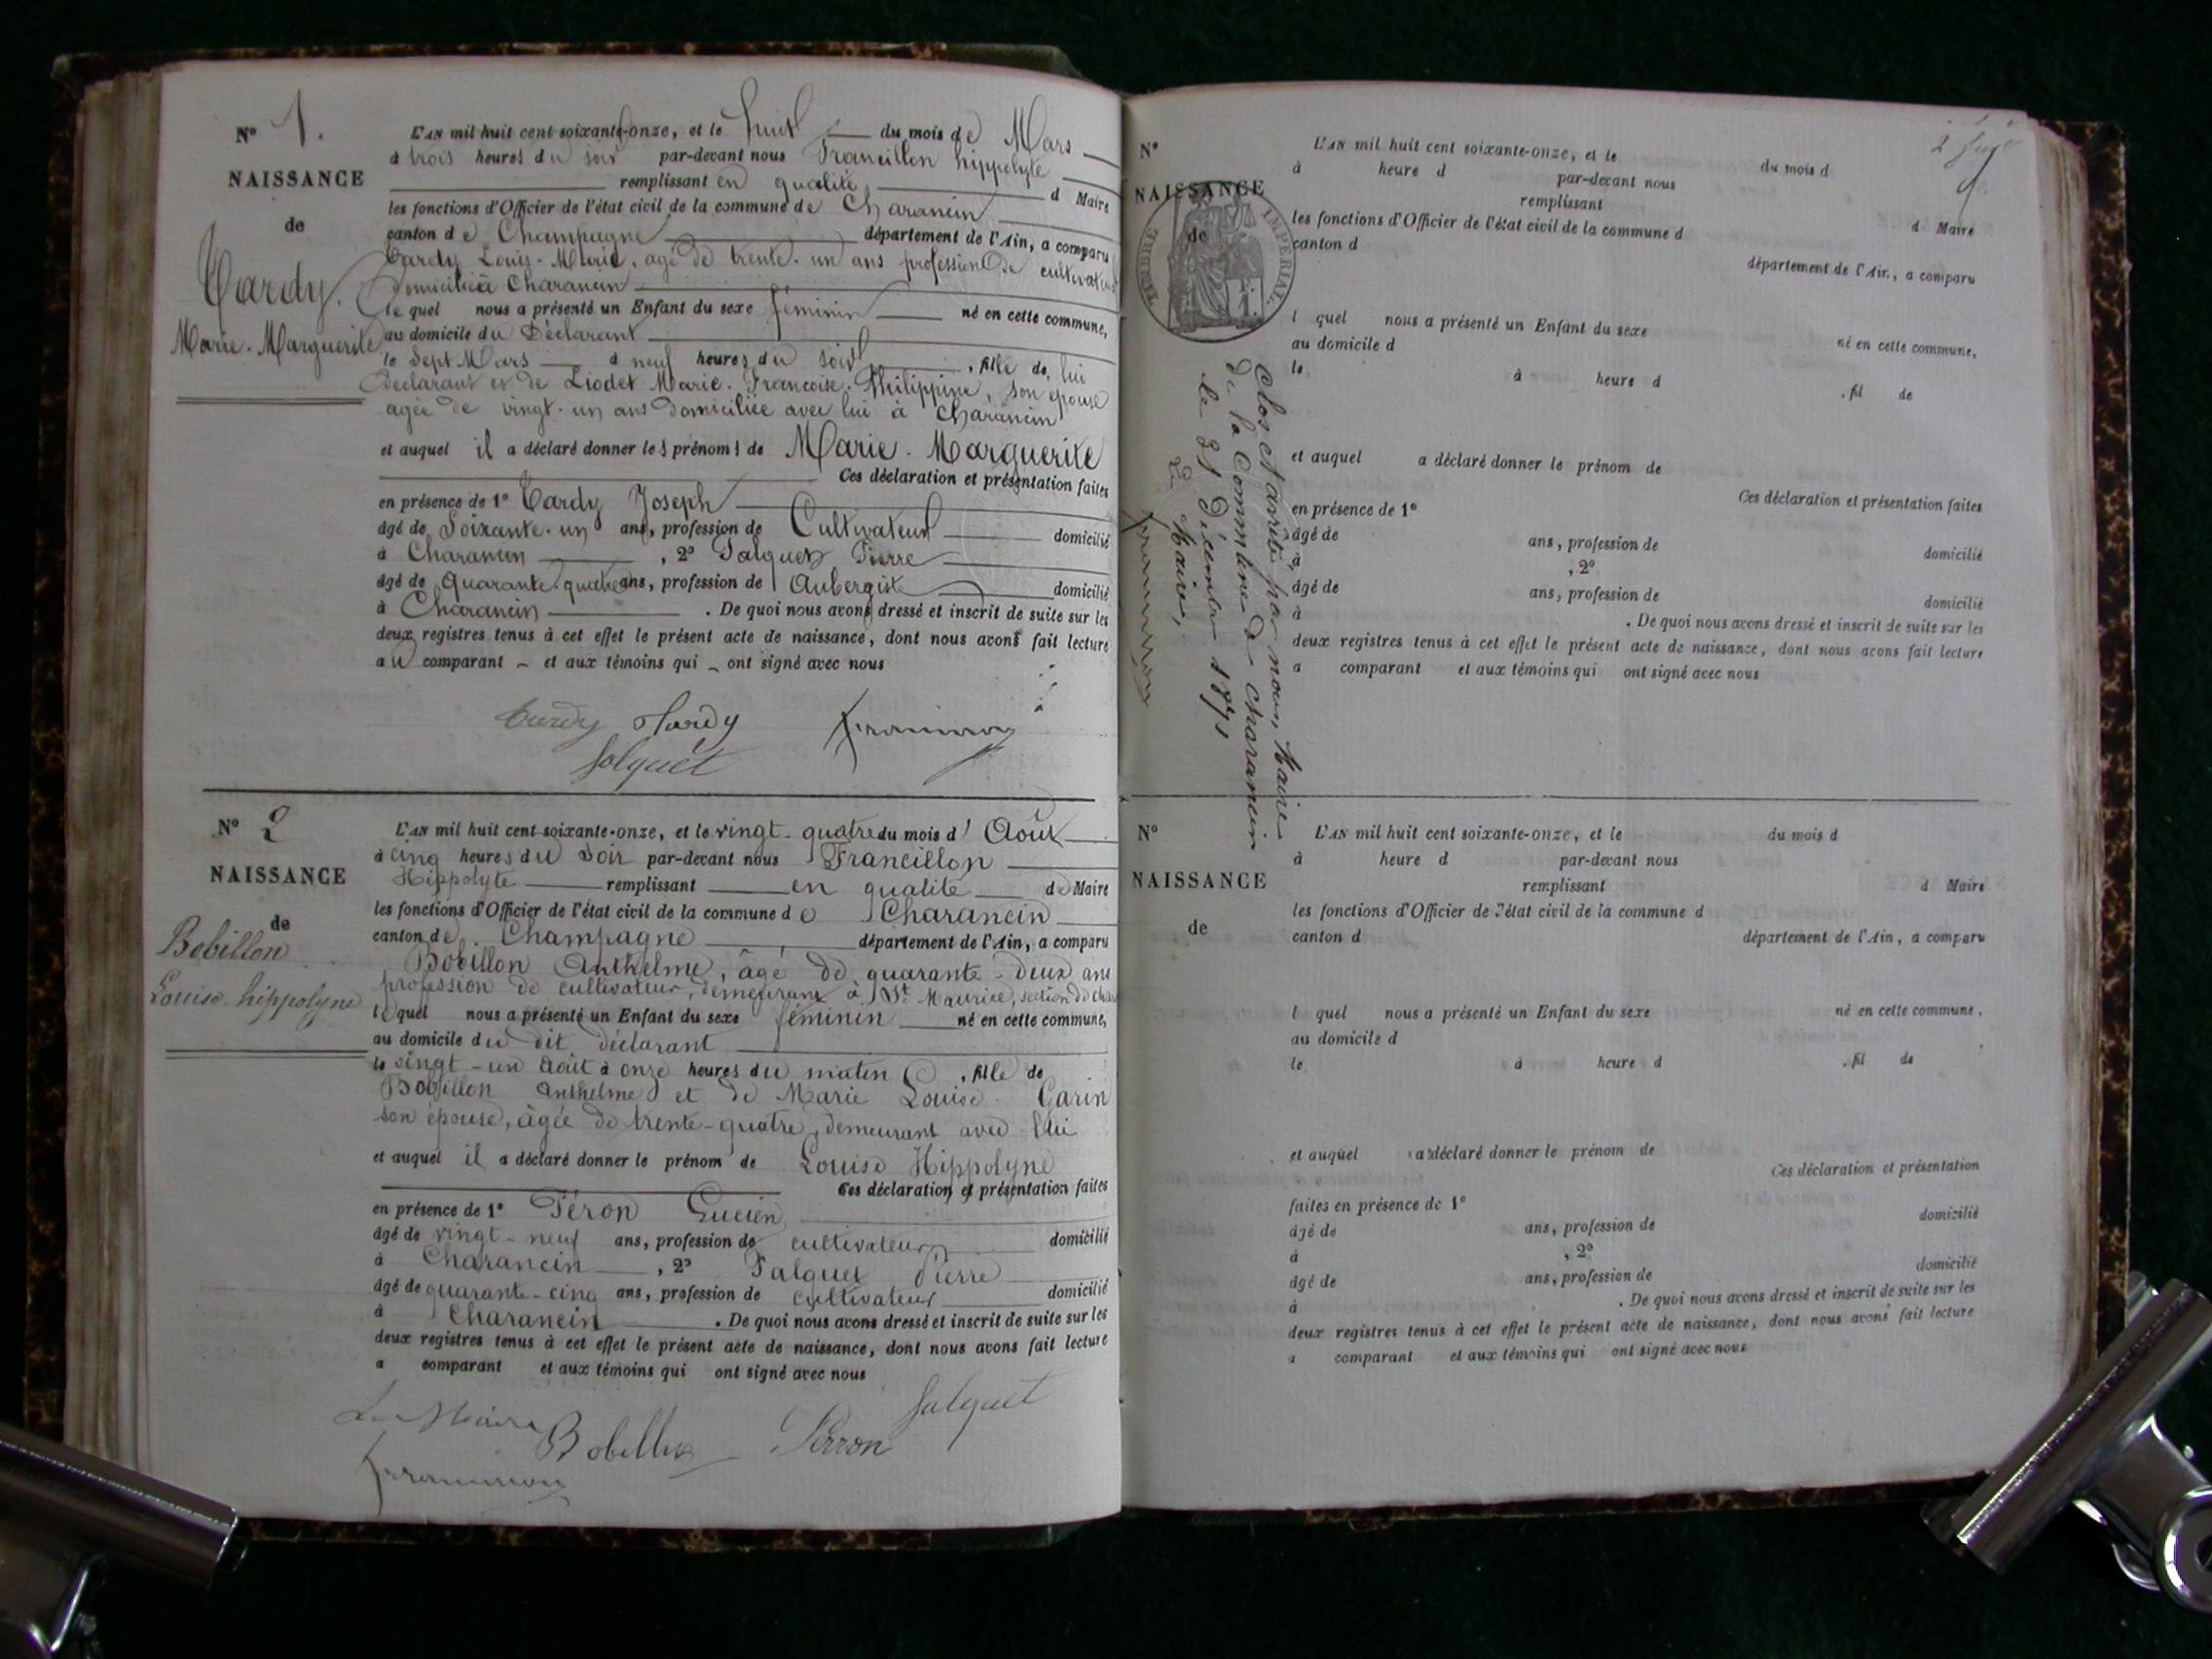 N° 1.
NAISSANCE
de
Tardy
Marie-Marguerite
L'AN mil huit cent soixante-onze, et le huit du mois de Mars
à trois heures du soir par-devant nous Francillon hippolyte
remplissant en qualité d Maire
les fonctions d'Officier de l'état civil de la commune de Charancin
canton de Champagne département de l'Ain, a comparu
Tardy Louis-Marie, agé de trente-un ans profession de cultivateur
domicilié à Charancin
le quel nous a présenté un Enfant du sexe féminin né en cette commune,
au domicile du Déclarant
le Sept Mars à neuf heures du soir, fille de lui
déclarant et de Liodet Marie-Francoise-Philippine, son épouse
agée de vingt-un ans domiciliée avec lui à Charancin
et auquel il a déclaré donner les prénoms de Marie-Marguerite
Ces déclaration et présentation faites
en présence de 1° Tardy Joseph
âgé de Soixante-un ans, profession de Cultivateur domicilié
à Charancin, 2° Falquet Pierre
âgé de quarante-quatre ans, profession de Aubergiste domicilié
à Charancin. De quoi nous avons dressé et inscrit de suite sur les
deux registres tenus à cet effet le présent acte de naissance, dont nous avons fait lecture
au comparant et aux témoins qui ont signé avec nous
Tardy Tardy Francillon
falquet
N° 2
NAISSANCE
de
Bobillon
Louise-hippolyne
L'AN mil huit cent soixante-onze, et le vingt-quatre du mois d'Août
à cinq heures du Soir par-devant nous Francillon
Hippolyte remplissant en qualité de Maire
les fonctions d'Officier de l'état civil de la commune de Charancin
canton de Champagne département de l'Ain, a comparu
Bobillon Anthelme, âgé de quarante-deux ans
profession de cultivateur, demeurant à St Maurice, section de
lequel nous a présenté un Enfant du sexe féminin né en cette commune,
au domicile du dit déclarant
le vingt-un Août à onze heures du matin, fille de
Bobillon Anthelme et de Marie Louise Carin
son épouse, âgée de trente-quatre, demeurant avec lui
et auquel il a déclaré donner le prénom de Louise Hippolyne
Ces déclaration et présentation faites
en présence de 1° Péron Lucien
âgé de vingt-neuf ans, profession de cultivateur domicilié
à Charancin, 2° Falquet Pierre
âgé de quarante-cinq ans, profession de cultivateur domicilié
à Charancin. De quoi nous avons dressé et inscrit de suite sur les
deux registres tenus à cet effet le présent acte de naissance, dont nous avons fait lecture
a comparant et aux témoins qui ont signé avec nous
Le Maire Bobillon Perron falquet
Francillon
N°
NAISSANCE
de
TIMBRE IMPÉRIAL
L'AN mil huit cent soixante-onze, et le du mois d
à heure d par-devant nous
remplissant d Maire
les fonctions d'Officier de l'état civil de la commune d
canton d département de l'Ain, a comparu
l quel nous a présenté un Enfant du sexe né en cette commune,
au domicile d
le à heure d , fil de
et auquel a déclaré donner le prénom de
Ces déclaration et présentation faites
en présence de 1°
âgé de ans, profession de domicilié
à , 2°
âgé de ans, profession de domicilié
à . De quoi nous avons dressé et inscrit de suite sur les
deux registres tenus à cet effet le présent acte de naissance, dont nous avons fait lecture
a comparant et aux témoins qui ont signé avec nous
Clos et arrêté par nous, Maire
de la Commune de Charancin
le 31 Décembre 1871
Le Maire,
Francillon
N°
NAISSANCE
de
L'AN mil huit cent soixante-onze, et le du mois d
à heure d par-devant nous
remplissant d Maire
les fonctions d'Officier de l'état civil de la commune d
canton d département de l'Ain, a comparu
l quel nous a présenté un Enfant du sexe né en cette commune,
au domicile d
le à heure d , fil de
et auquel a déclaré donner le prénom de
Ces déclaration et présentation
faites en présence de 1°
âgé de ans, profession de domicilié
à , 2°
âgé de ans, profession de domicilié
à . De quoi nous avons dressé et inscrit de suite sur les
deux registres tenus à cet effet le présent acte de naissance, dont nous avons fait lecture
a comparant et aux témoins qui ont signé avec nous